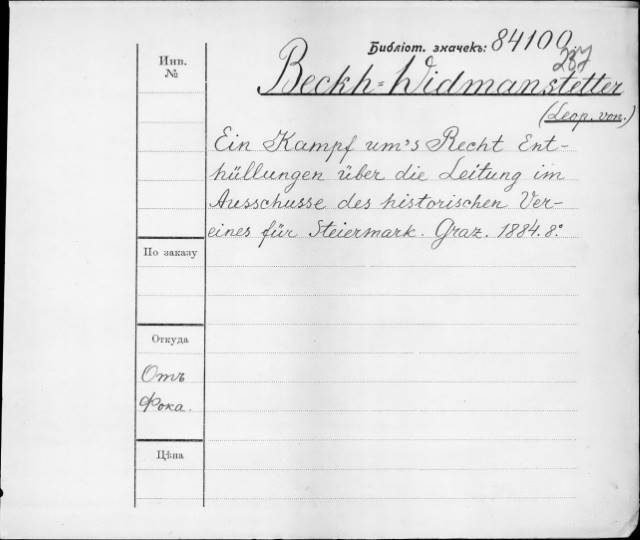 Инв.
№
Библіот. значекъ: 84100
237
Beckh=Widmanstetter
(Leop. von.)
Ein Kampf um's Recht Ent-
hüllungen über die Leitung im
Ausschusse des historischen Ver-
eines für Steiermark. Graz. 1884. 8°.
По заказу
Откуда
Отъ
Фока.
Цѣна